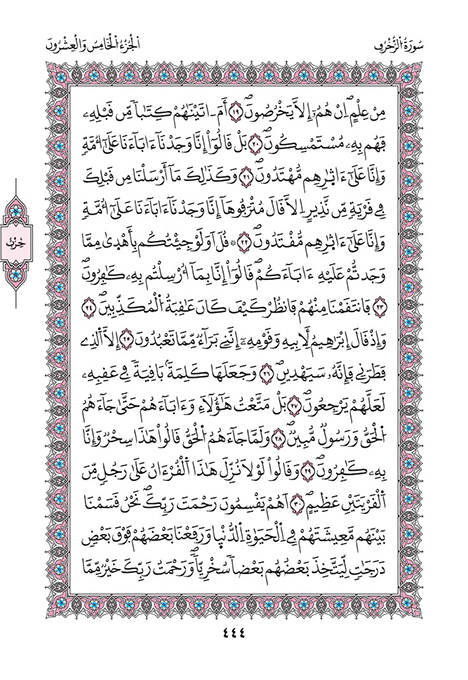 سُورَةُ الزُّخْرُفِ
الْجُزْءُ الْخَامِسُ وَالْعِشْرُونَ
مِنْ عِلْمٍۖ اِنْ هُمُۥٓ إِلَّا يَخْرُصُونَۖ ١٩ أَمَ ـاتَيْنَٰهُمْ كِتَٰباٗ مِّن قَبْلِهِۦ
فَهُم بِهِۦ مُسْتَمْسِكُونَۖ ٢٠ بَلْ قَالُوٓاْ إِنَّا وَجَدْنَآ ءَابَآءَنَا عَلَىٰٓ أُمَّةٖ
وَإِنَّا عَلَىٰٓ ءَاثٰ۪رِهِم مُّهْتَدُونَۖ ٢١ وَكَذَٰلِكَ مَآ أَرْسَلْنَا مِن قَبْلِكَ
فِي قَرْيَةٖ مِّن نَّذِيرٍ اِلَّا قَالَ مُتْرَفُوهَآ إِنَّا وَجَدْنَآ ءَابَآءَنَا عَلَىٰٓ أُمَّةٖ
وَإِنَّا عَلَىٰٓ ءَاثٰ۪رِهِم مُّقْتَدُونَۖ ٢٢ ۞ قُلَ اَوَلَوْ جِئْتُكُم بِأَهْد۪ىٰ مِمَّا
وَجَدتُّمْ عَلَيْهِ ءَابَآءَكُمْۖ قَالُوٓاْ إِنَّا بِمَآ أُرْسِلْتُم بِهِۦ كَٰفِرُونَۖ
٢٣ فَانتَقَمْنَا مِنْهُمْ فَانظُرْ كَيْفَ كَانَ عَٰقِبَةُ الْمُكَذِّبِينَۖ ٢٤
وَإِذْ قَالَ إِبْرَٰهِيمُ لِأَبِيهِ وَقَوْمِهِۦٓ إِنَّنِي بَرَآءٞ مِّمَّا تَعْبُدُونَ ٢٥ إِلَّا اَلذِي
فَطَرَنِي فَإِنَّهُۥ سَيَهْدِينِۖ ٢٦ وَجَعَلَهَا كَلِمَةَۢ بَاقِيَةٗ فِي عَقِبِهِۦ
لَعَلَّهُمْ يَرْجِعُونَۖ ٢٧ بَلْ مَتَّعْتُ هَٰٓؤُلَآءِ وَءَابَآءَهُمْ حَتَّىٰ جَآءَهُمُ
الْحَقُّ وَرَسُولٞ مُّبِينٞۖ ٢٨ وَلَمَّا جَآءَهُمُ الْحَقُّ قَالُواْ هَٰذَا سِحْرٞ وَإِنَّا
بِهِۦ كَٰفِرُونَۖ ٢٩ وَقَالُواْ لَوْلَا نُزِّلَ هَٰذَا اَلْقُرْءَانُ عَلَىٰ رَجُلٖ مِّنَ
اَلْقَرْيَتَيْنِ عَظِيمٍۖ ٣٠ اَهُمْ يَقْسِمُونَ رَحْمَتَ رَبِّكَۖ نَحْنُ قَسَمْنَا
بَيْنَهُم مَّعِيشَتَهُمْ فِي اِلْحَيَوٰةِ اِلدُّنْي۪اۖ وَرَفَعْنَا بَعْضَهُمْ فَوْقَ بَعْضٖ
دَرَجَٰتٖ لِّيَتَّخِذَ بَعْضُهُم بَعْضاٗ سُخْرِيّاٗۖ وَرَحْمَتُ رَبِّكَ خَيْرٞ مِّمَّا
حِزْب
٤٤٤